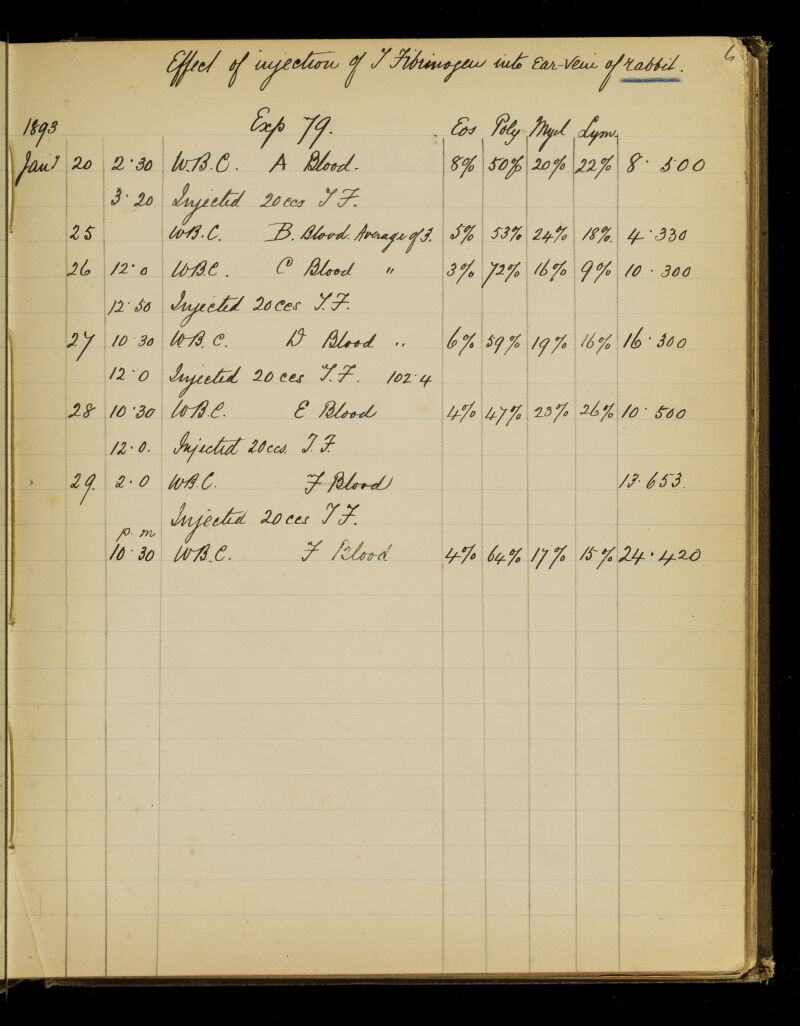 6
Effect of injection of T Fibrinogen into Ear-Vein of rabbit.
1893 Exp 79. Eos Poly Myel Lym.
Jany 20 2·30 W.B.C. A Blood. 8% 50% 20% 22% 8·500
3·20 Injected 20ccs T F.
25 WBC. B. Blood. Average of 3. 5% 53% 24% 18% 4·330
26 12·0 WBC. C Blood " 3% 72% 16% 9% 10·300
12·50 Injected 20ccs T.F.
27 10·30 W.B.C. D Blood " 6% 59% 19% 16% 16·300
12·0 Injected 20ccs T.F. 102·4
28 10·30 W.B.C. E Blood 4% 47% 23% 26% 10·500
12·0. Injected 20ccs. T.F.
29. 2·0 WB.C. F Blood 13·653.
Injected 20ccs T F.
p.m
10·30 WB.C. F Blood 4% 64% 17% 15% 24·420